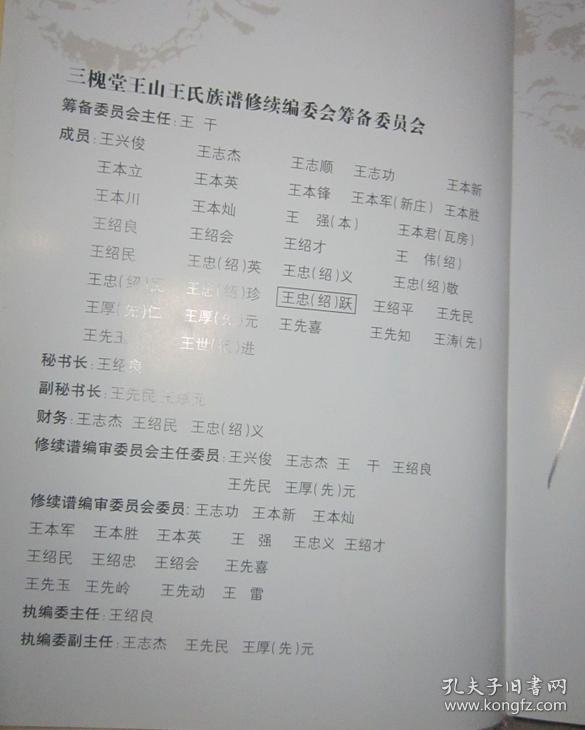 三槐堂王山王氏族谱修续编委会筹备委员会
筹备委员会主任:王 干
成员:王兴俊 王志杰 王志顺 王志功 王本新
王本立 王本英 王本锋 王本军(新庄) 王本胜
王本川 王本灿 王 强(本) 王本君(瓦房)
王绍良 王绍会 王绍才 王 伟(绍)
王绍民 王忠(绍)英 王忠(绍)义 王忠(绍)敬
王忠(绍) 王忠(绍)珍 王忠(绍)跃 王绍平 王先民
王厚(先)仁 王厚(先)元 王先喜 王先知 王涛(先)
王先玉 王世( )进
秘书长:王绍良
副秘书长:王先民
财务:王志杰 王绍民 王忠(绍)义
修续谱编审委员会主任委员:王兴俊 王志杰 王 干 王绍良
王先民 王厚(先)元
修续谱编审委员会委员:王志功 王本新 王本灿
王本军 王本胜 王本英 王 强 王忠义 王绍才
王绍民 王绍忠 王绍会 王先喜
王先玉 王先岭 王先动 王 雷
执编委主任:王绍良
执编委副主任:王志杰 王先民 王厚(先)元
孔夫子旧书网
www.kongfz.com